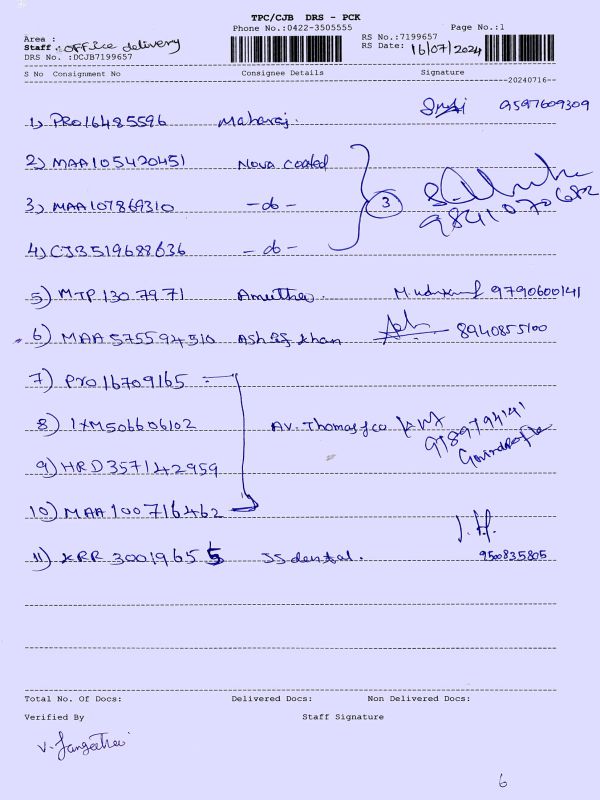 TPC/CJB DRS - PCK
Phone No.:0422-3505555
Page No.:1
Area :
Staff : Office delivery
DRS No. :DCJB7199657
RS No.:7199657
RS Date: 16/07/2024
S No Consignment No Consignee Details Signature
20240716
1) PRO16485596 Maharaj. 9597609309
2) MAA105420451 Nova Coated
3) MAA107869310 -do- 3
9841070682
4) CJB519688636 -do-
5) MTP1307971 Amutha 9790600141
6) MAA575594510 Ashif Khan 8940855100
7) PRO16709165
8) IXM506606102 Av. Thomas & co
9) HRD357142959
10) MAA100716462
11) KRR300196555 SS dental. 9500835805
Total No. Of Docs: Delivered Docs: Non Delivered Docs:
Verified By Staff Signature
6